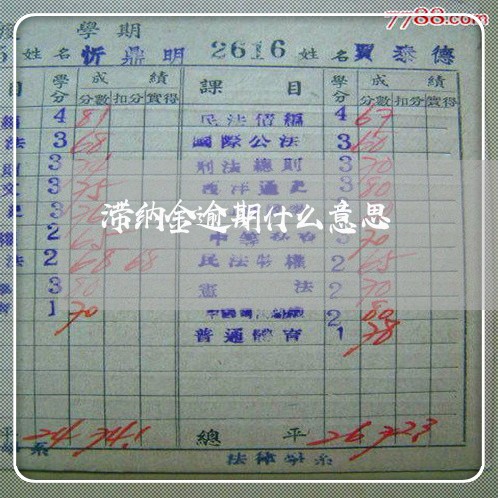 7788.com
學期
姓名 忻鼎明 2616 姓名 賈泰德
目 學分 成績 課目 學分 成績
分數 扣分 實得 分數 扣分 實得
4 81 民法債編 4 67
法 3 68 國際公法 3 60
3 刑法總則 3 70
3 75 西洋通史 3 80
滞纳金逾期什么意思
2 70
法 2 68 68 民法物權 2 65
3 80 憲法 2 70
1 70 2 80
普通體育 1 78
平 24 74.1 總平 26 72.3
系 法律學系